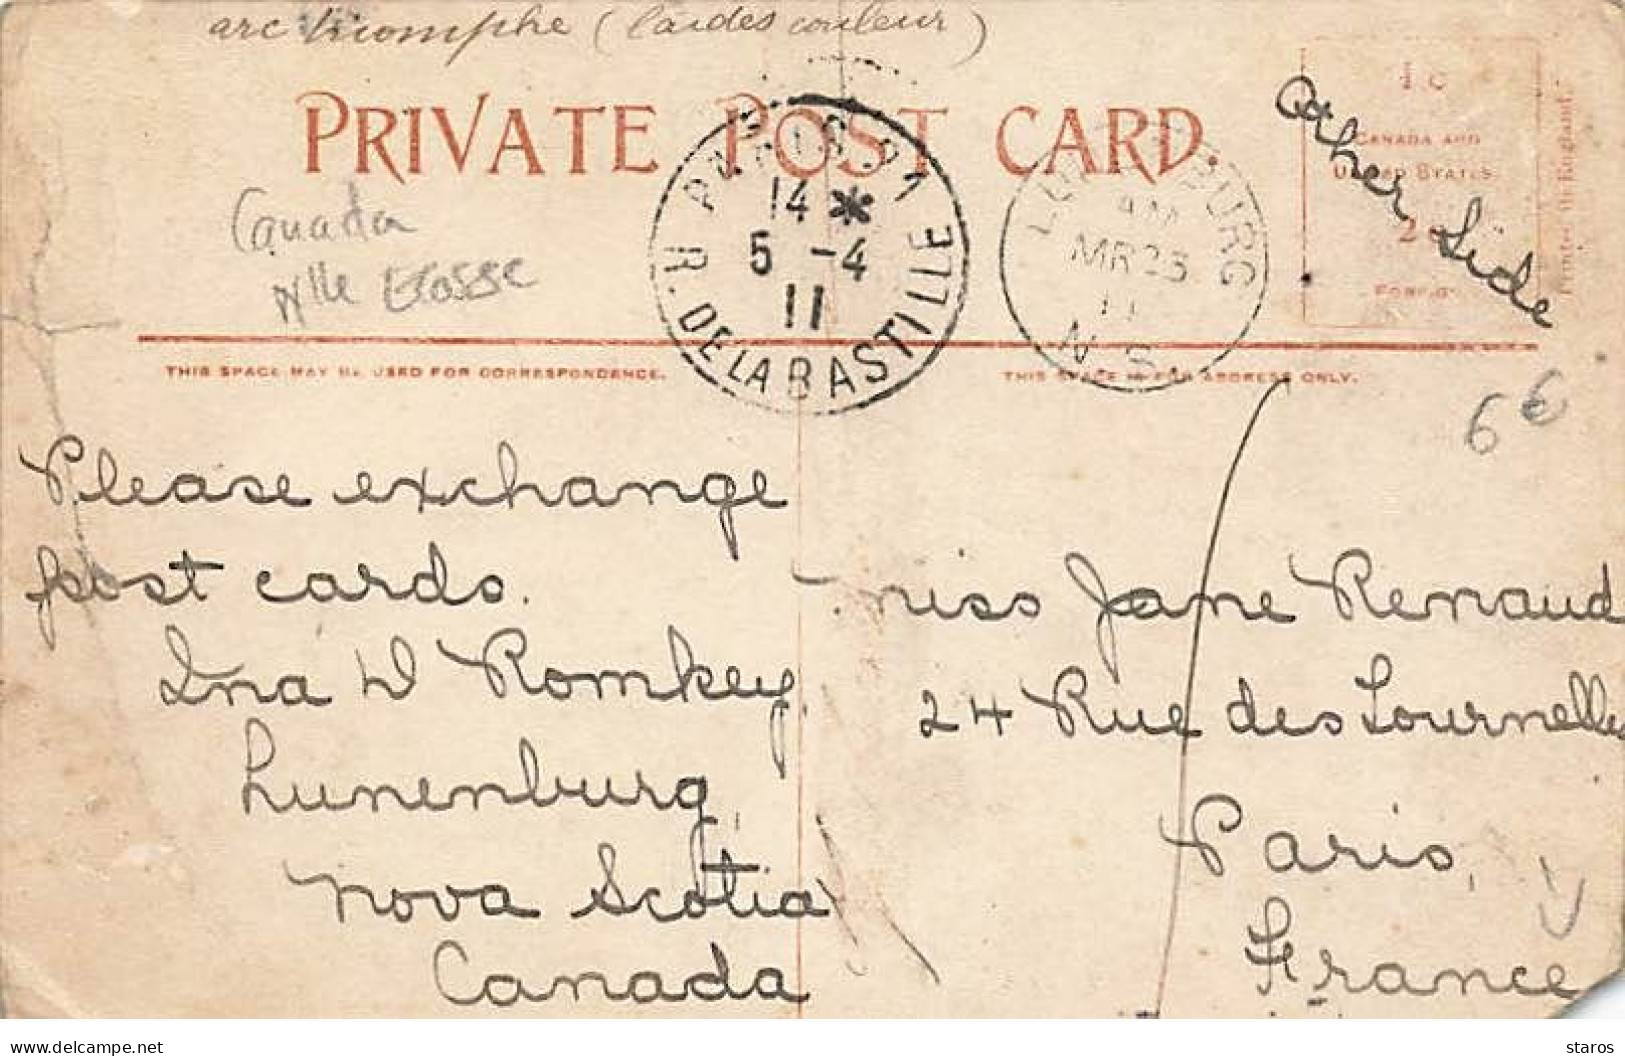 arc triomphe (cartes couleur)
PRIVATE POST CARD.
1c
CANADA AND
UNITED STATES.
2c
FOREIGN.
Printed in England.
Other Side
Canada
Nlle Ecosse
PARIS
14 *
5 -4
11
R. DE LA BASTILLE
LUNENBURG
AM
MR 23
11
N.S.
THIS SPACE MAY BE USED FOR CORRESPONDENCE.
THIS SPACE IS FOR ADDRESS ONLY.
6€
Please exchange
post cards.
Ina D Romkey,
Lunenburg,
Nova Scotia
Canada
Miss Jane Renaud
24 Rue des Tournelles
Paris,
France
delcampe.net
staros